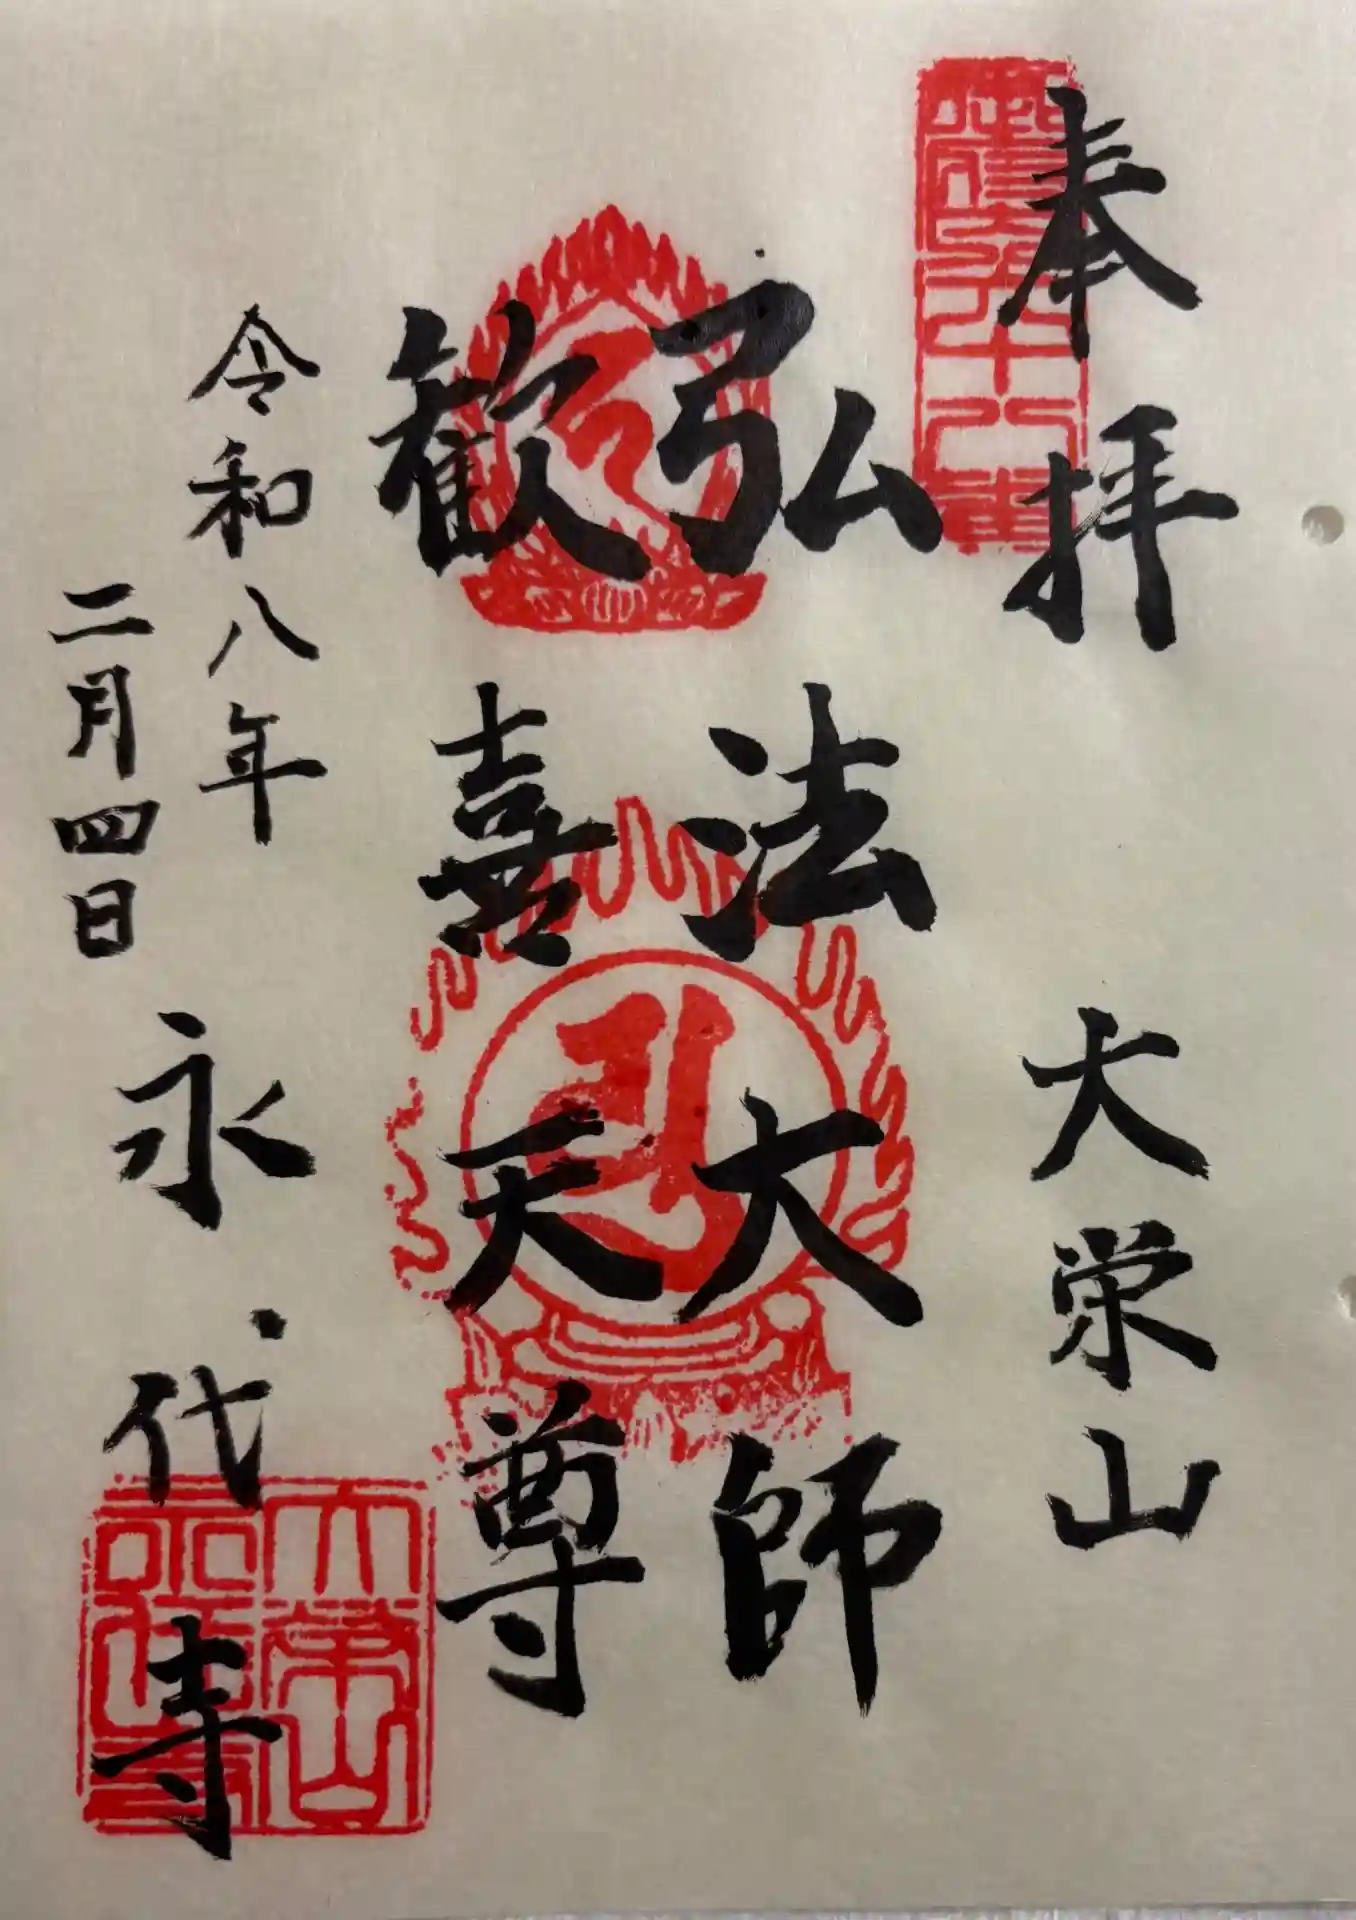 奉拝
大栄山
弘法大師
歓喜天尊
令和八年
二月四日
永代寺
大栄山
永代寺